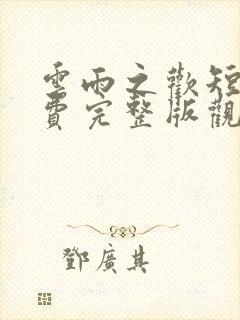 雲雨之歡短
費完整版觀
鄧廣其